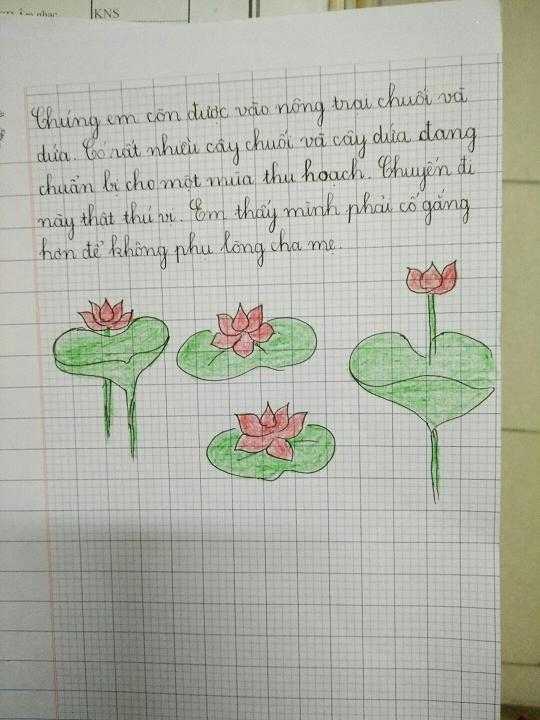 KNS
Chúng em còn được vào nông trại chuối và
dứa. Có rất nhiều cây chuối và cây dứa đang
chuẩn bị cho một mùa thu hoạch. Chuyến đi
này thật thú vị. Em thấy mình phải cố gắng
hơn để không phụ lòng cha mẹ.